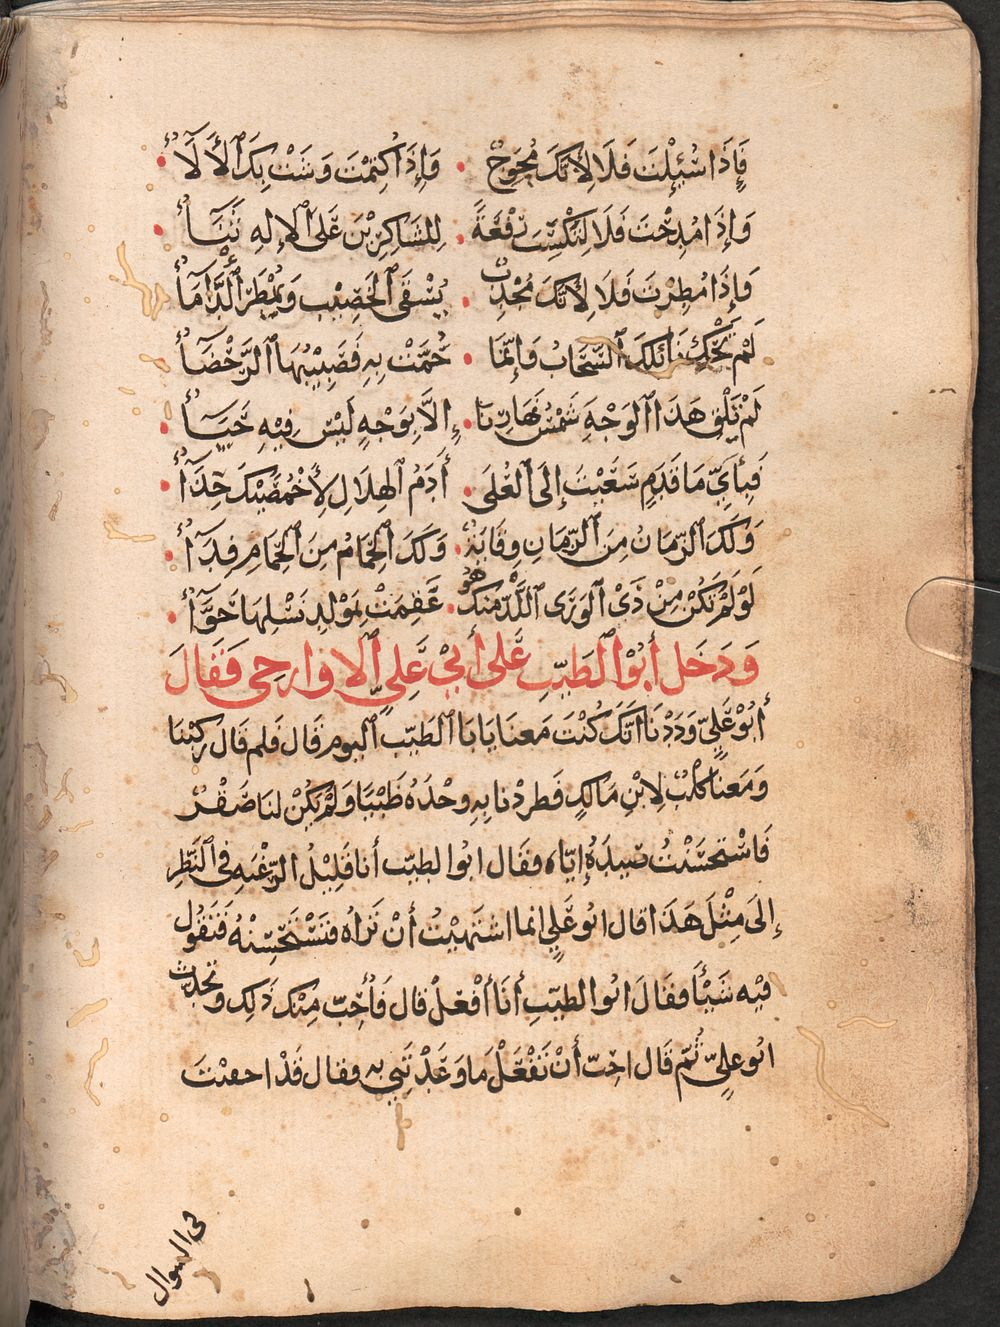 فَإِذَا سُئِلْتَ فَلَا لِأَنَّكَ مُحْوِجٌ • وَإِذَا كُتِمْتَ وَشَتْ بِكَ ٱلْأَلَآءُ •
وَإِذَا مُدِحْتَ فَلَا لِتَكْسِبَ رِفْعَةً • لِلشَّاكِرِيْنَ عَلَى ٱلْإِلٰهِ ثَنَآءُ •
وَإِذَا مُطِرْتَ فَلَا لِأَنَّكَ مُجْدِبٌ • يُسْقَى ٱلْخَصِيْبُ وَيُمْطَرُ ٱلدَّأْمَآءُ
لَمْ تَحْكِ نَائِلَكَ ٱلسَّحَابُ وَإِنَّمَا • حُمَّتْ بِهِ فَصَبِيْبُهَا ٱلرُّحَضَآءُ
لَمْ تَلْقَ هَذَا ٱلْوَجْهَ شَمْسُ نَهَارِنَا • إِلَّا بِوَجْهٍ لَيْسَ فِيْهِ حَيَآءُ •
فَبِأَيِّ مَا قَدَمٍ سَعَيْتَ إِلَى ٱلْعُلَى • أَدَمُ ٱلْهِلَالِ لِأَخْمُصَيْكَ حِذَآءُ •
وَلَكَ ٱلزَّمَانُ مِنَ ٱلزَّمَانِ وِقَايَةٌ • وَلَكَ ٱلْحِمَامُ مِنَ ٱلْحِمَامِ فِدَآءُ •
لَوْ لَمْ تَكُنْ مِنْ ذَيْ ٱلْوَرَى ٱللَّذْ مِنْكَ هُوْ • عَقِمَتْ بِمَوْلِدِ نَسْلِهَا حَوَّآءُ •
وَدَخَلَ أَبُوْ ٱلطَّيِّبِ عَلَى أَبِيْ عَلِيِّ ٱلْاوَارجى فَقَالَ
أَبُوْ عَلِيٍّ وَدَدْنَا أَنَّكَ كُنْتَ مَعَنَا يَا بَا ٱلطَّيِّبِ ٱليوم قَالَ فَلم قَالَ رَكِبْنَا
وَمَعَنَا كَلْبٌ لِابْنِ مَالِكٍ فَطَرَدْنَا بِهِ وَحْدَهُ ظَبْيًا وَلَمْ يَكُنْ لَنَا صَقْرٌ
فَاسْتَحْسَنْتُ صَيْدَهُ إِيَّاه فقَال ابو الطيّب أَنَا قَلِيْلُ ٱلرّغْبَهِ في ٱلنَّظَرِ
إِلَى مِثْلِ هَذَا قال ابُو عَلِيٍ انما اشتَهَيْتُ أَنْ تَرَاه فَتَسْتَحْسِنْهُ فَتَقُوْل
فِيْهِ شَيْئًا فقَالَ ابُو الطيِّبِ أَنَا أَفْعَلُ قال فَأُحِبّ مِنْكَ ذَلِك وتحَدّث
ابُو عليّ ثُمَّ قَال احِبّ أَنْ تَفْعَلَ مَا وَعَدْتَنِي به فقال قَدْ احفيت
في السوال